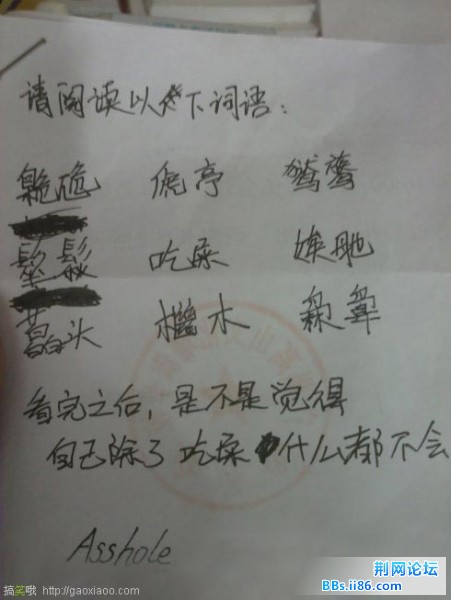 请阅读以下词语：
亭
吃屎 娭毑
藠头 檵木
看完之后，是不是觉得
自己除了吃屎什么都不会
Asshole
搞笑哦 http://gaoxiaoo.com
荆网论坛
BBs.ii86.com